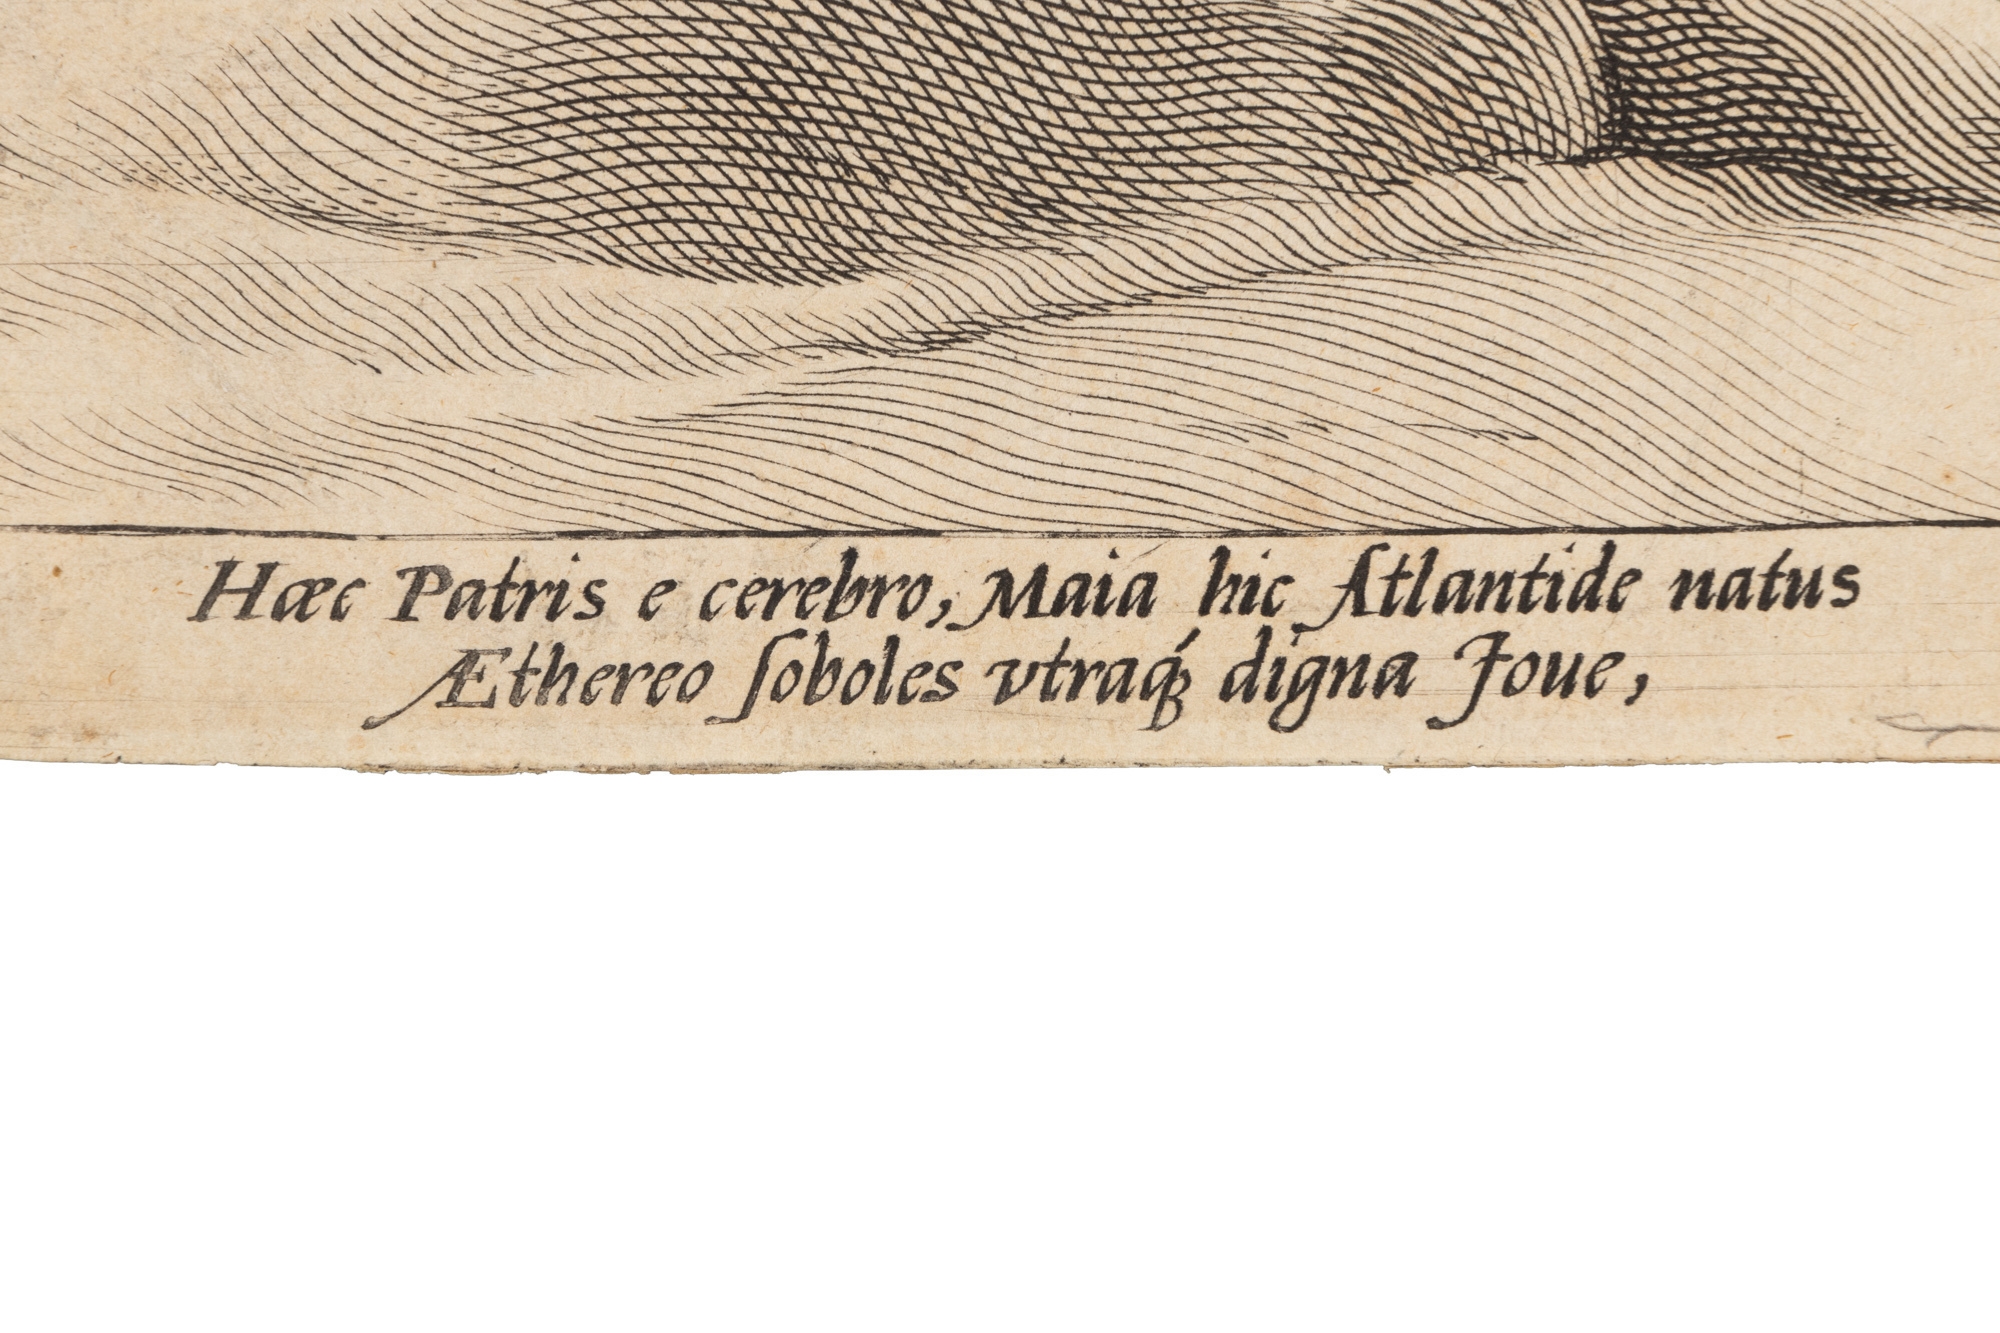 Hæc Patris e cerebro, Maia hic Atlantide natus
Æthereo ſoboles vtraq́ꝫ digna Joue,